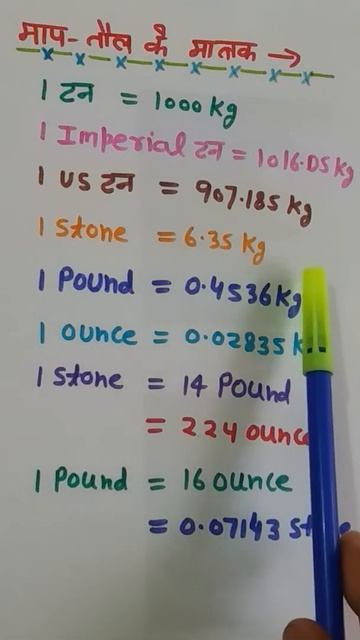 माप-तौल के मात्रक →
1 टन = 1000 Kg
1 Imperial टन = 1016.05 Kg
1 US टन = 907.185 Kg
1 Stone = 6.35 Kg
1 Pound = 0.4536 Kg
1 ounce = 0.02835 K
1 Stone = 14 Pound
= 224 ounc
1 Pound = 16 ounce
= 0.07143 St